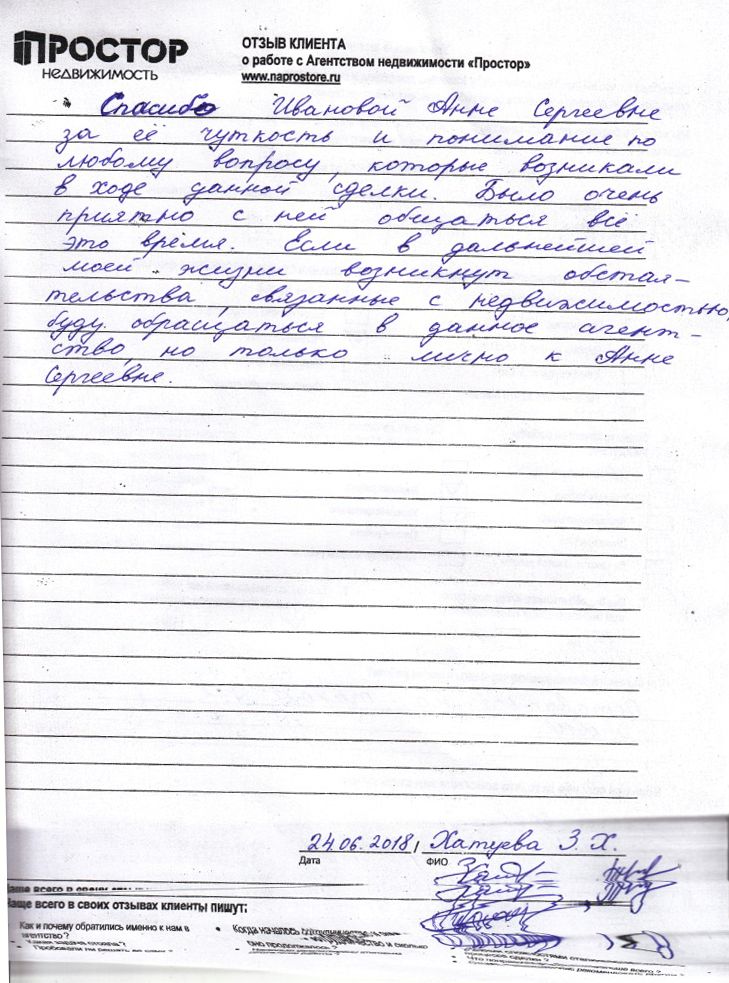 ПРОСТОР
НЕДВИЖИМОСТЬ
ОТЗЫВ КЛИЕНТА
о работе с Агентством недвижимости «Простор»
www.naprostore.ru
Спасибо Ивановой Анне Сергеевне
за её чуткость и понимание по
любому вопросу, которые возникали
в ходе данной сделки. Было очень
приятно с ней общаться всё
это время. Если в дальнейшей
моей жизни возникнут обстоя-
тельства, связанные с недвижимостью,
буду обращаться в данное агент-
ство, но только лично к Анне
Сергеевне.
24.06.2018, Хатуева З. Х.
Дата ФИО
Чаще всего в своих отзывах клиенты пишут:
Как и почему обратились именно к нам в
агентство?
Когда началось
и сколько
оно продолжалось?